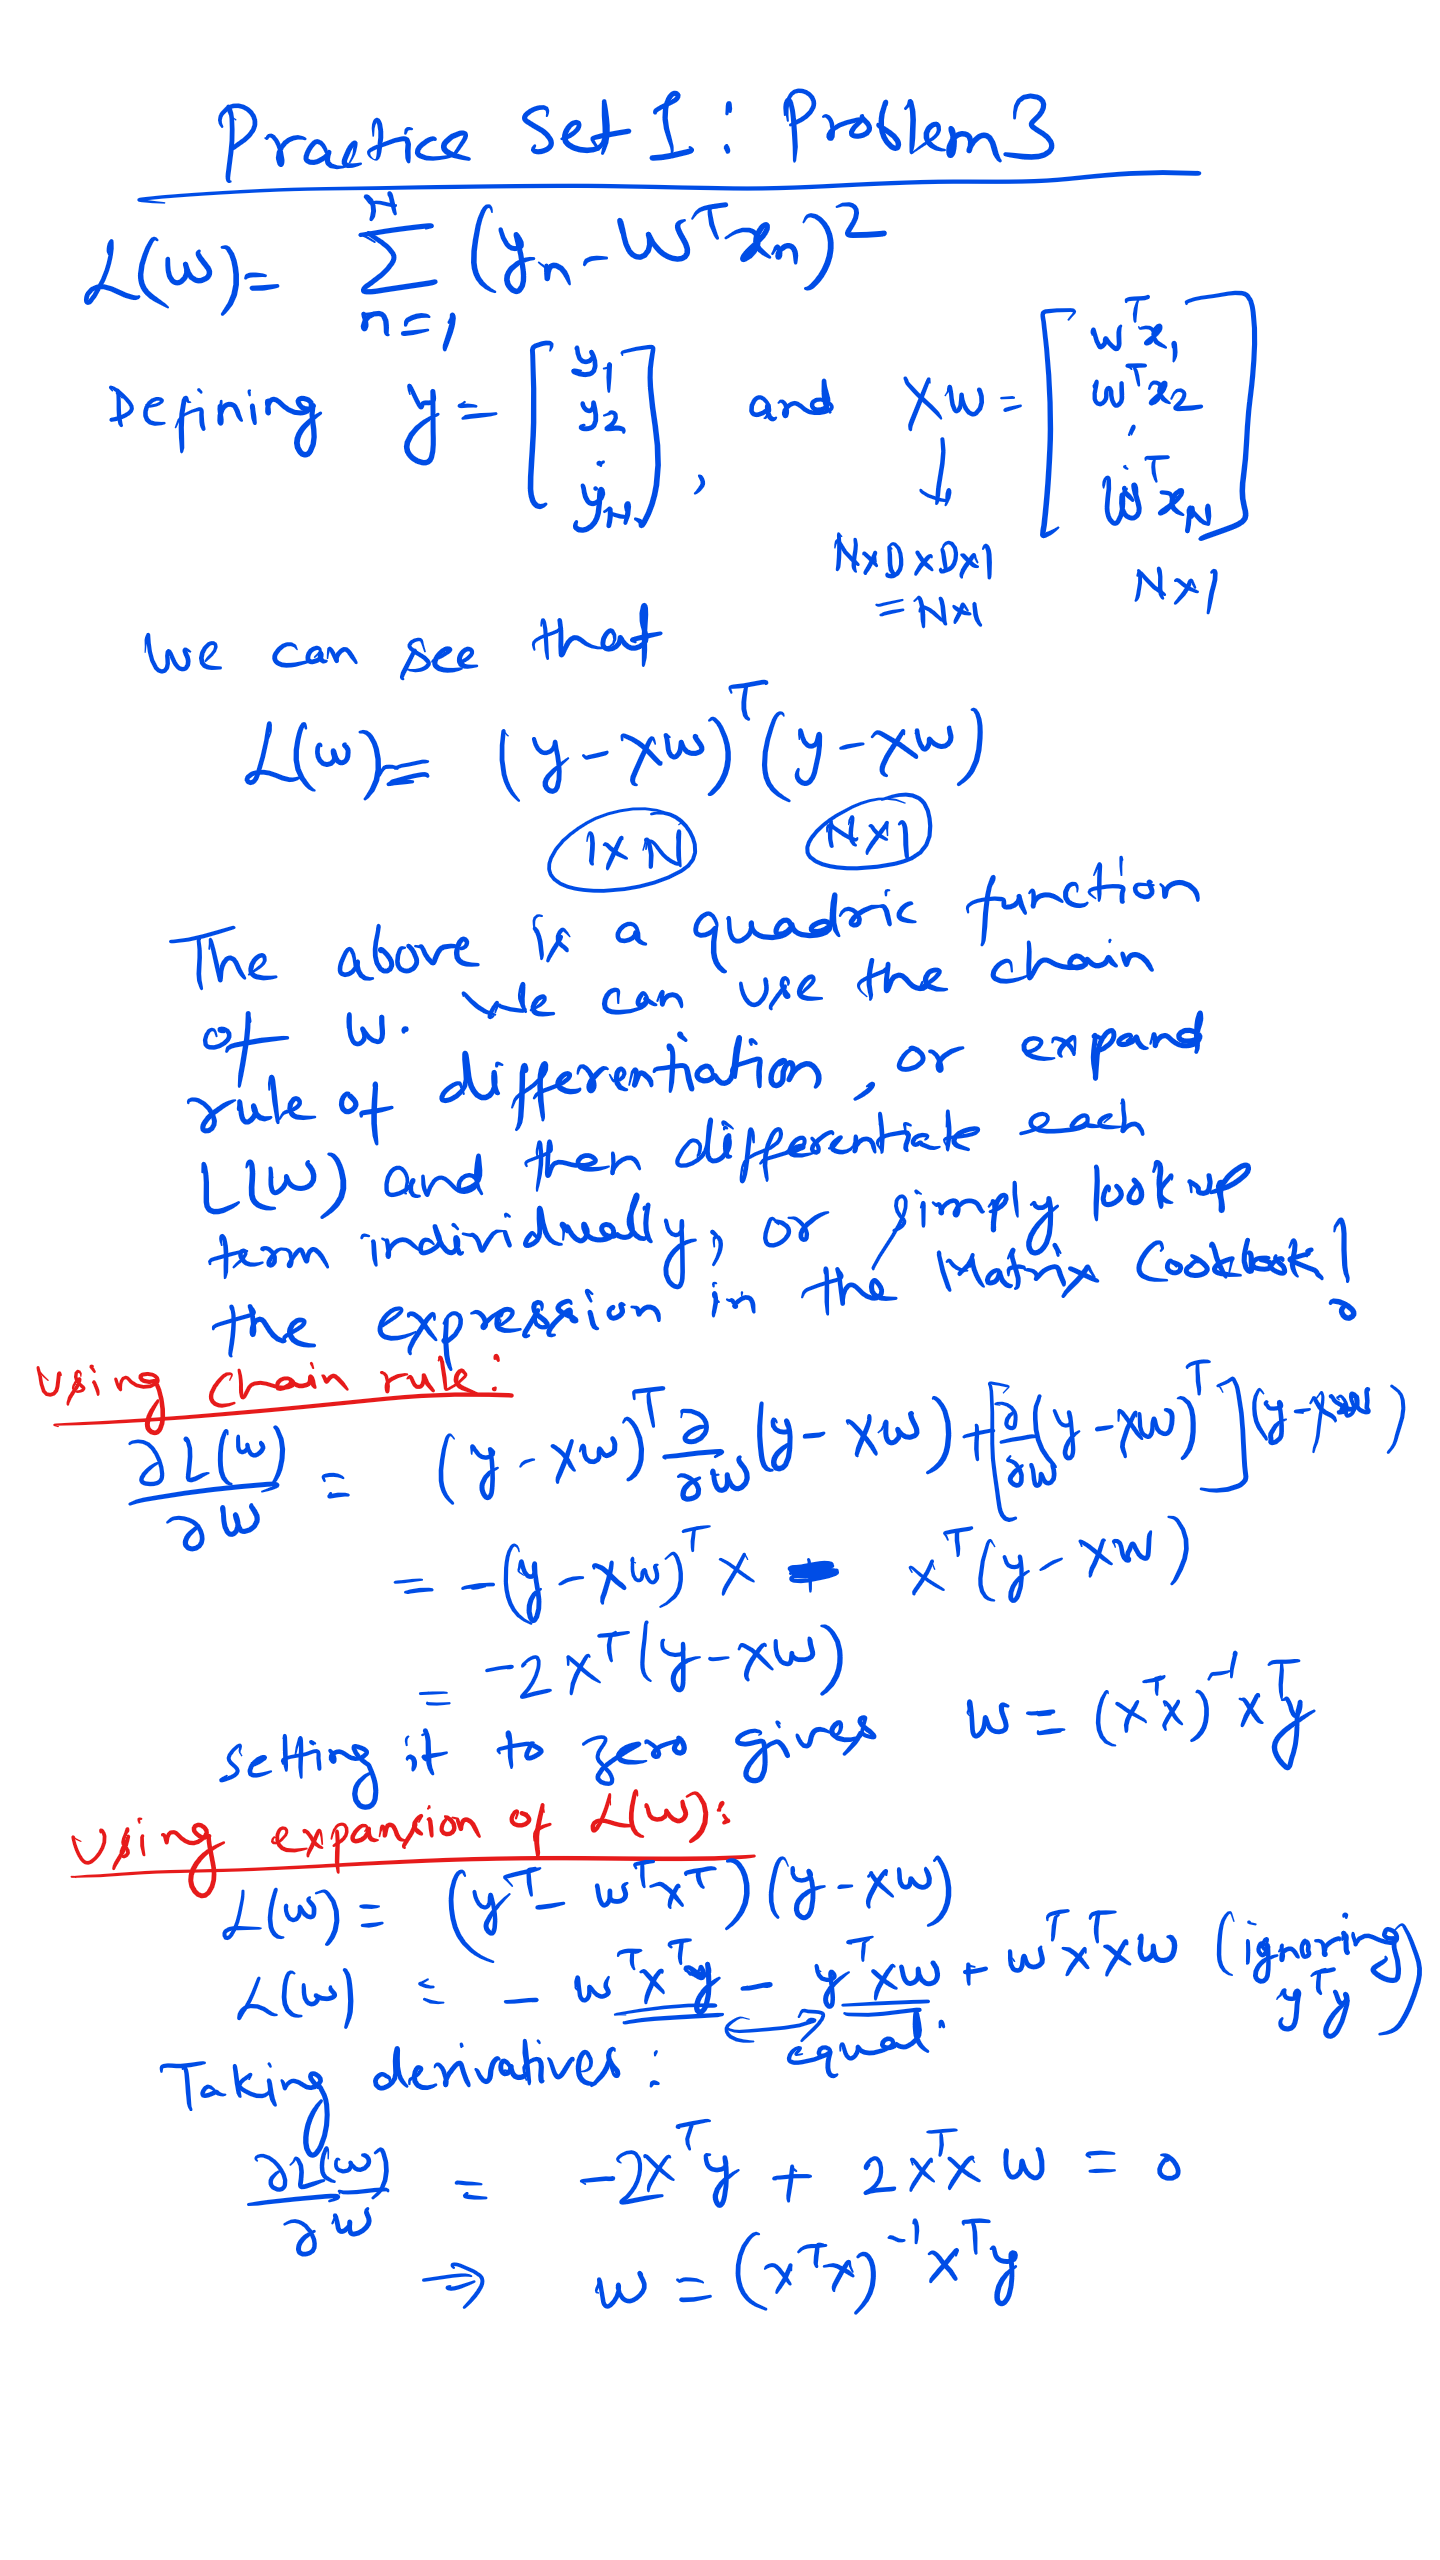 Practice Set 1 : Problem 3
L(w) = ∑_{n=1}^{N} (y_n - w^T x_n)^2
Defining y = [y_1 y_2 . y_N], and Xw = [w^T x_1 w^T x_2 : w^T x_N]
N×D × D×1
= N×1
N×1
we can see that
L(w) = (y - Xw)^T (y - Xw)
1×N N×1
The above is a quadric function
of w. We can use the chain
rule of differentiation, or expand
L(w) and then differentiate each
term individually, or simply look up
the expression in the Matrix Cookbook!
Using chain rule:
∂L(w)/∂w = (y - Xw)^T ∂/∂w (y - Xw) + [∂/∂w (y - Xw)^T] (y - Xw)
= -(y - Xw)^T X - X^T (y - Xw)
= -2 X^T (y - Xw)
setting it to zero gives w = (X^T X)^{-1} X^T y
Using expansion of L(w):
L(w) = (y^T - w^T X^T) (y - Xw)
L(w) = - w^T X^T y - y^T X w + w^T X^T X w (ignoring y^T y)
equal.
Taking derivatives:
∂L(w)/∂w = -2X^T y + 2X^T X w = 0
⇒ w = (X^T X)^{-1} X^T y